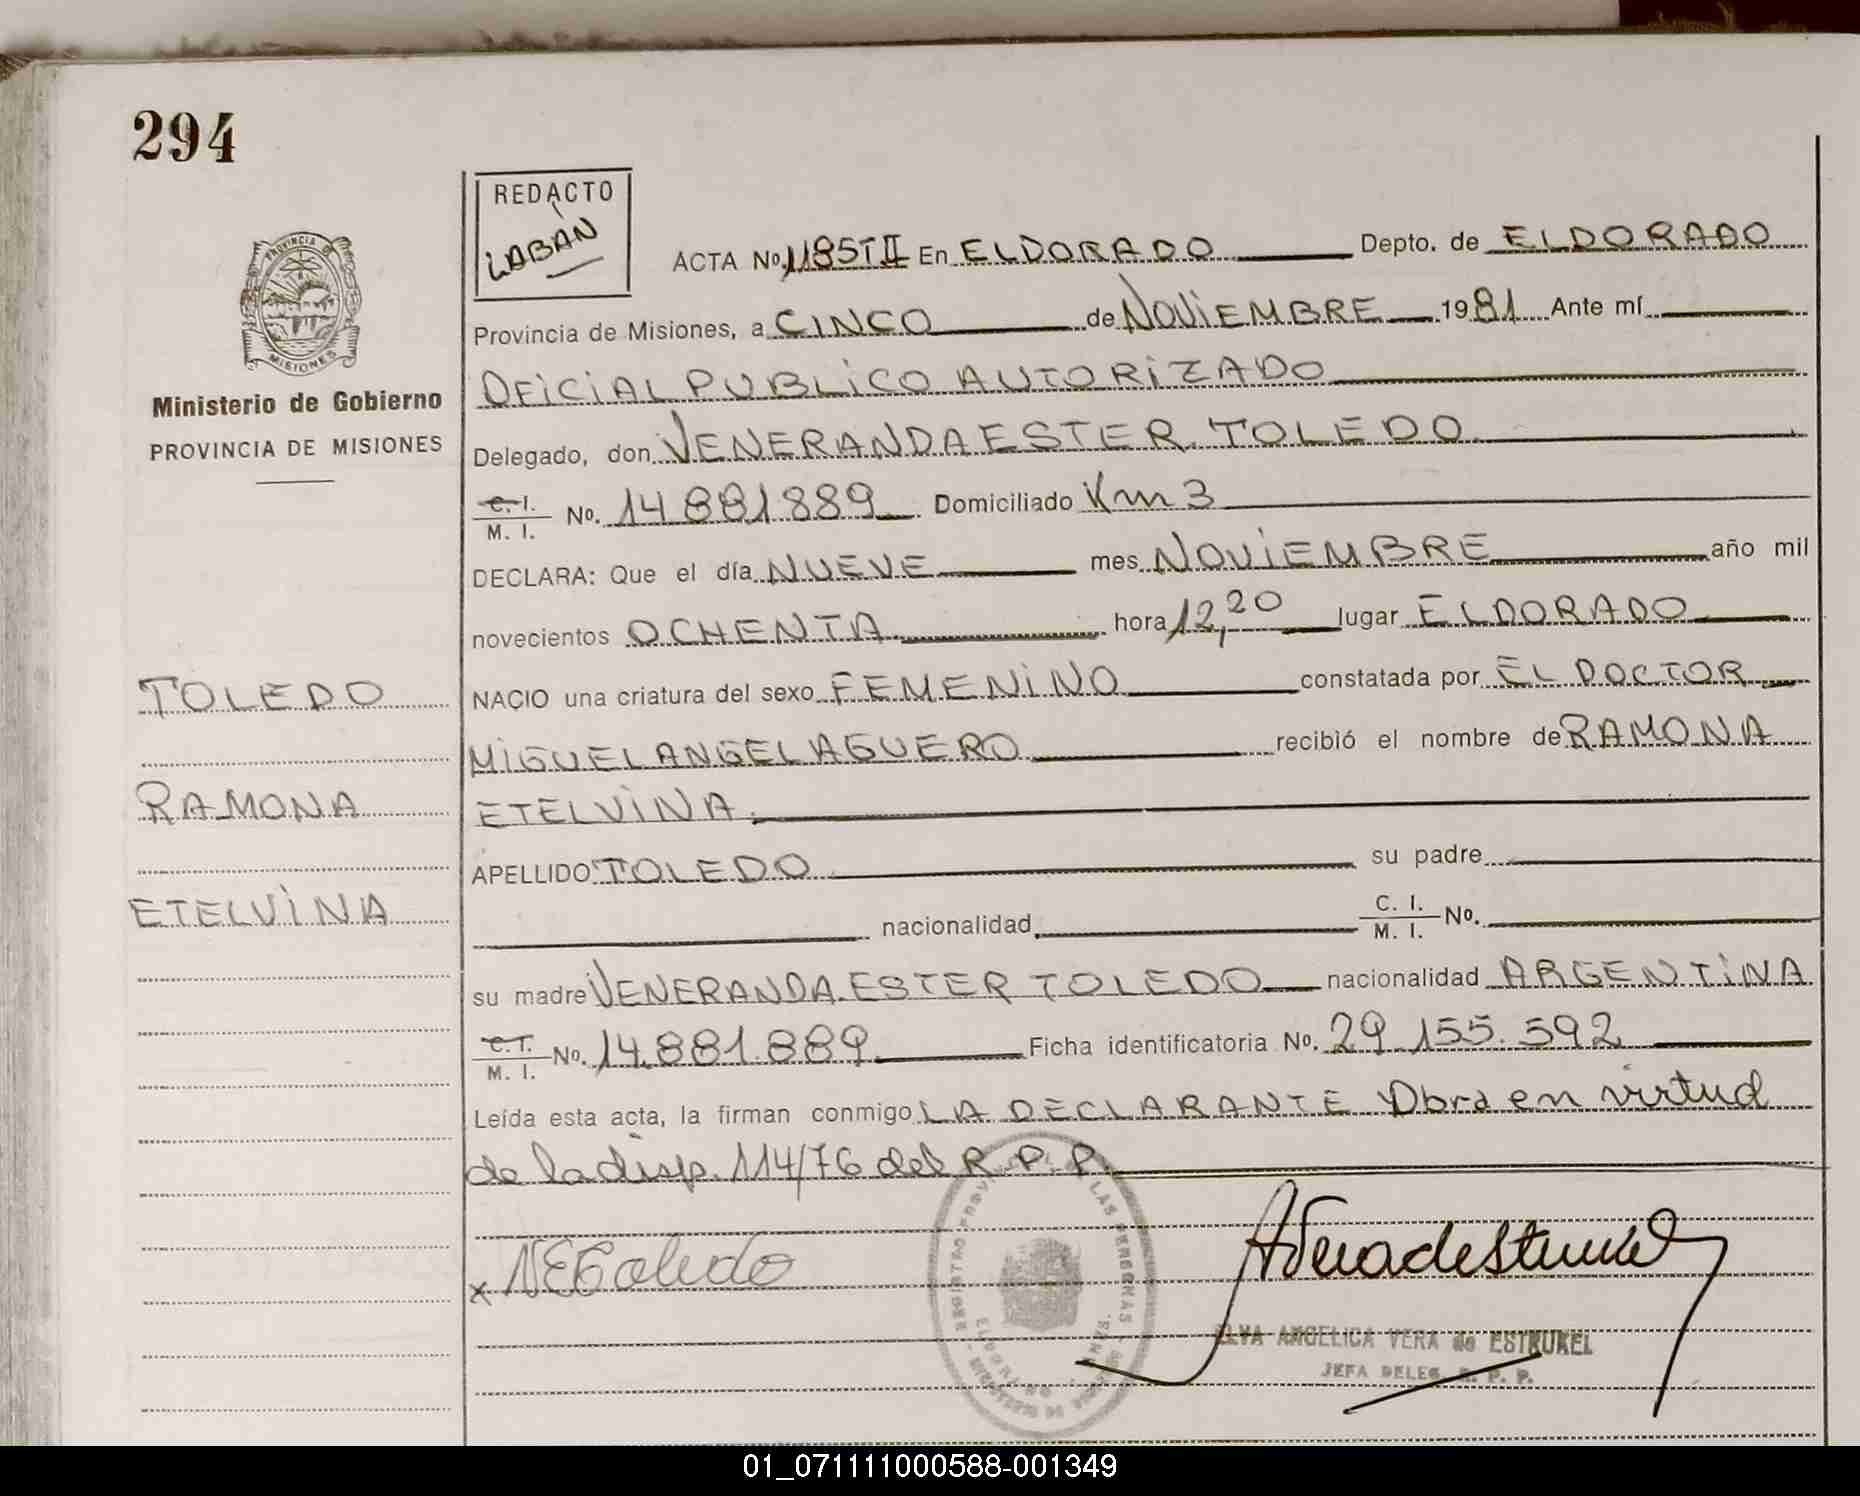 294
REDACTO
LABAN
ACTA No. 1185TII En ELDORADO Depto. de ELDORADO
Provincia de Misiones, a CINCO de NOViEMBRE 1981 Ante mí
OFiCiAL PUBLiCO AUTORiZADO
PROVINCIA DE
MISIONES
Ministerio de Gobierno
PROVINCIA DE MISIONES
Delegado, don VENERANDA ESTER TOLEDO
C. I.
M. I. No. 14.881.889 Domiciliado Km 3
DECLARA: Que el día NUEVE mes NOViEMBRE año mil
novecientos OCHENTA hora 12,20 lugar ELDORADO
NACIO una criatura del sexo FEMENiNO constatada por EL DOCTOR
MiGUEL ANGEL AGUERO recibió el nombre de RAMONA
ETELViNA
APELLIDO TOLEDO su padre
nacionalidad C. I. No.
M. I.
su madre VENERANDA ESTER TOLEDO nacionalidad ARGENTiNA
C. I.
M. I. No. 14.881.889 Ficha identificatoria No. 29.155.592
Leída esta acta, la firman conmigo LA DECLARANTE Obra en virtud
de la disp. 114/76 del R. P. P.
TOLEDO
RAMONA
ETELViNA
x VEToledo
ELVA ANGELICA VERA de ESTRUKEL
JEFA DELEG. R. P. P.
01_071111000588-001349